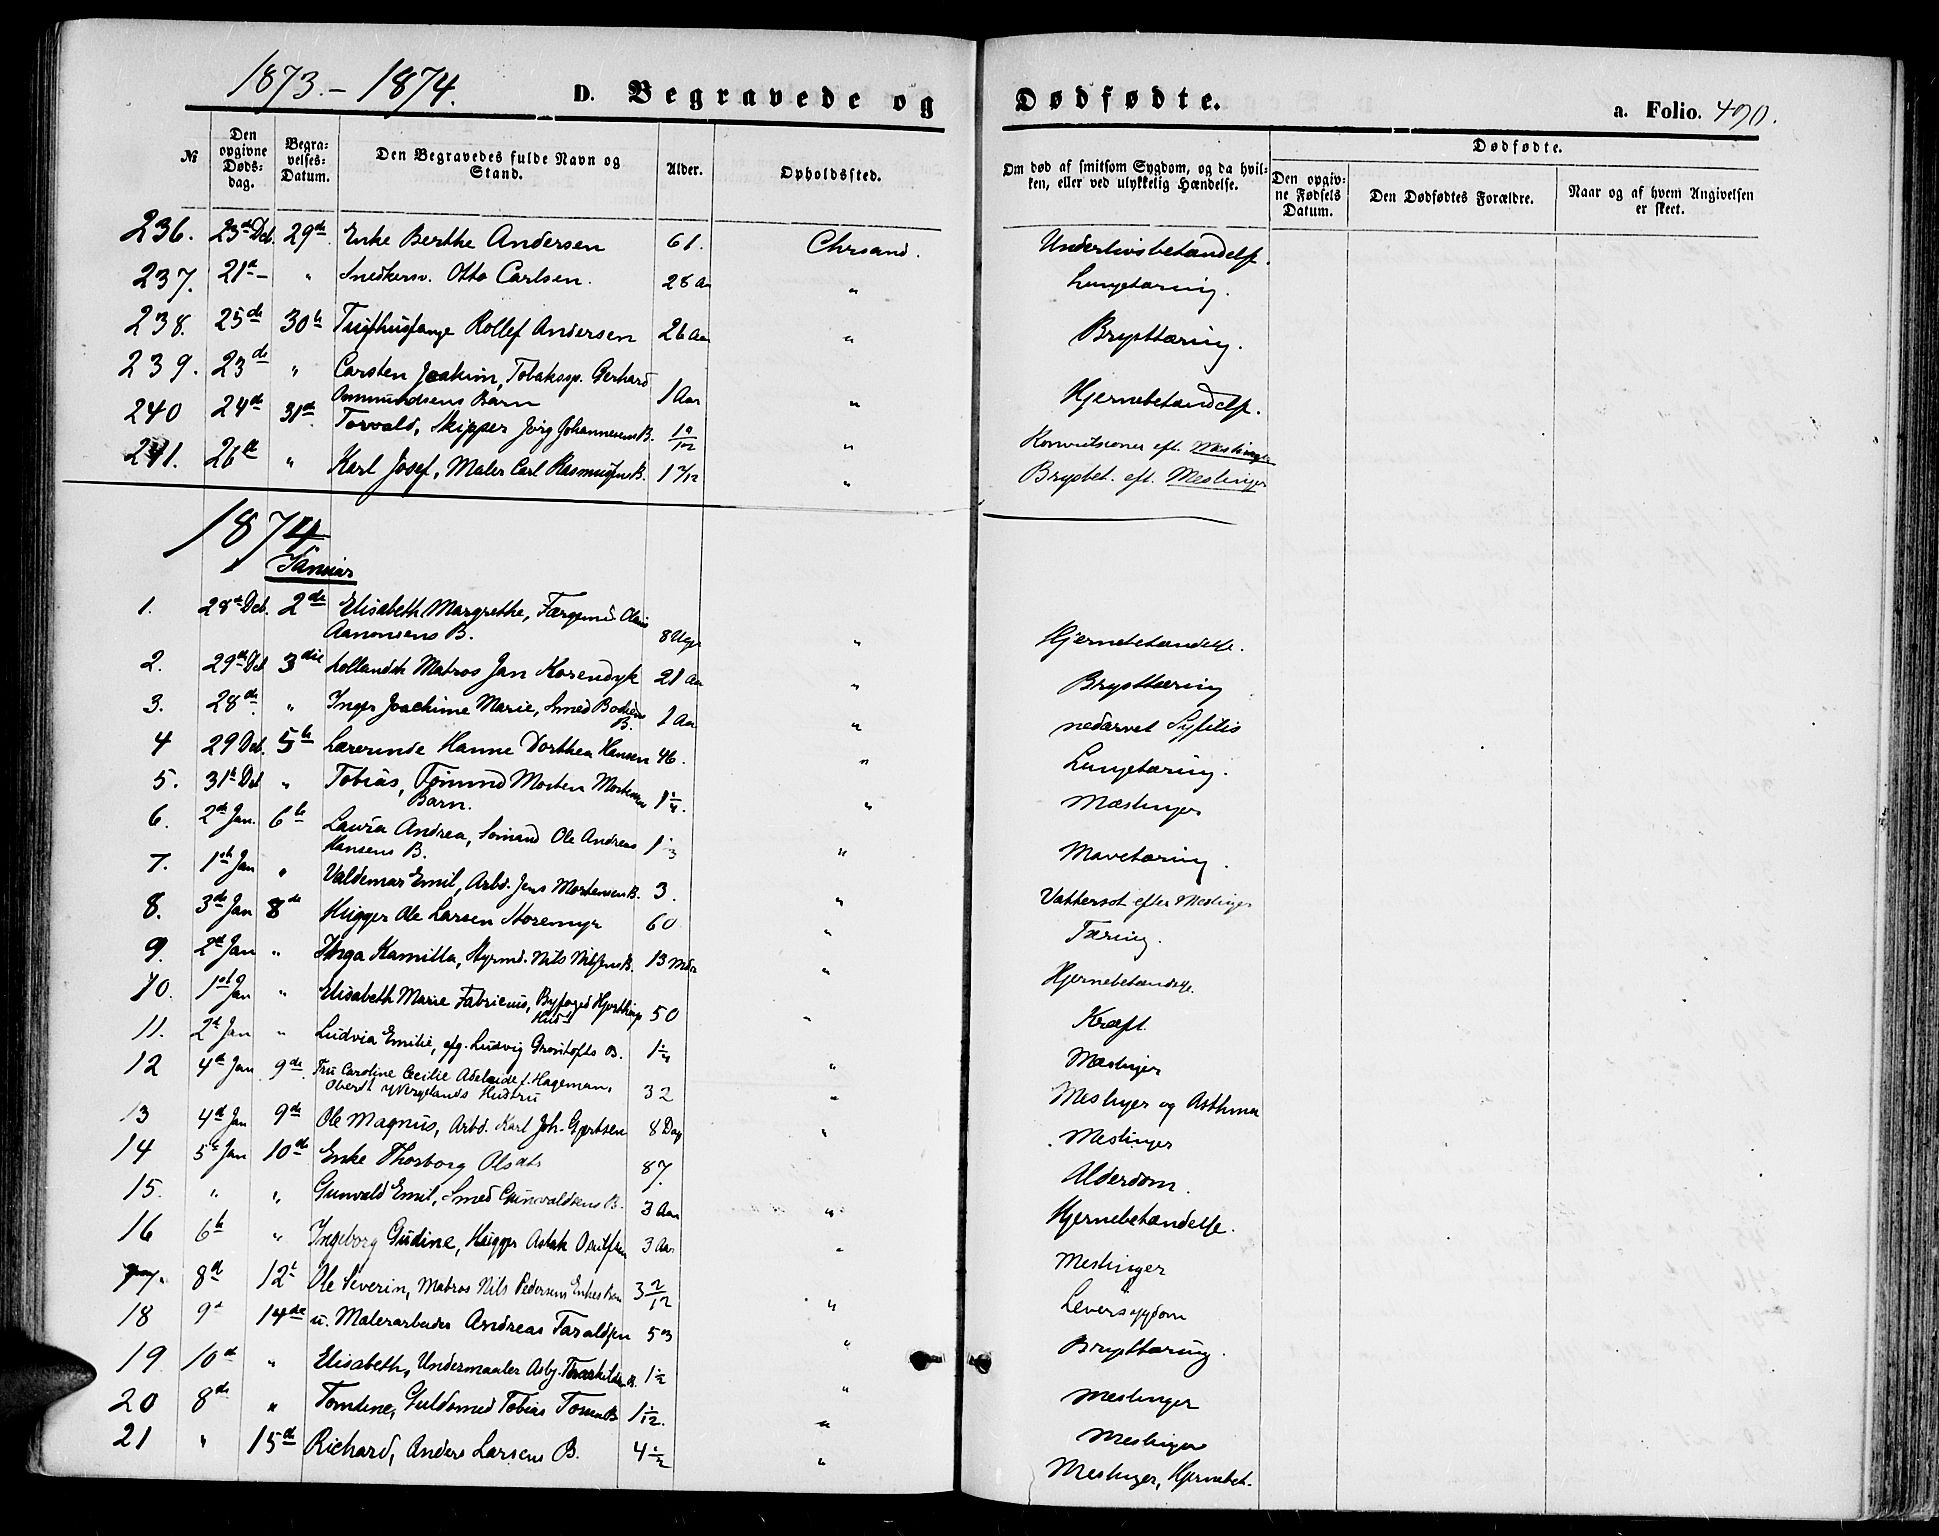 1873.–1874. D. Begravede og Dødfødte. a. Folio. 490.
№ Den opgivne Dødsdag. Begravelses-Datum. Den Begravedes fulde Navn og Stand. Alder. Opholdssted. Om død af smitsom Sygdom, og da hvilken, eller ved ulykkelig Hændelse. Dødfødte. Den opgivne Fødsels Datum. Den Dødfødtes Forældre. Naar og af hvem Angivelsen er skeet.
236. 23de Deb. 29de Enke Berthe Andersen 61. Chrsand. Underlivsbetændelse.
237. 21de – " Snedkersv. Otto Carlsen. 28 Aar " Lungetæring.
238. 25de 30te Tugthusfange Rollef Andersen 26 Aar " Brysttæring.
239. 23de " Carsten Joakim, Tobaksp. Gerhard
Ommundsens Barn 1 Aar " Hjernebetændelse.
240 24de 31de Torvald, Skipper Jørg Johannesens B. " Konvulsioner eft. Mæslinger
241. 26de " Karl Josef, Maler Carl Rasmussens B. 1 2/12 " Brystbet. eft. Meslinger
1874
Januar
1. 28de Deb. 2de Elisabeth Margrethe, Færgemd. Olaus
Aanonsens B. 8 Uger " Hjernebetændelse.
2. 29de Deb 3die hollandsk Matros Jan Korendyk 21 Aar " Brysttæring
3. 28de " Inger Joachime Marie, Smed Bodiens
B. 1 Aar " nedarvet Syfilis
4 29 Deb. 5te Lærerinde Hanne Dorthea Hansen 46. " Lungetæring.
5. 31te Deb " Tobias, Tømmd Morten Mortensen
Barn. 1 1/4. " Mæslinger
6. 2de Jan. 6te Laura Andrea, Sømand Ole Andreas
Hansens B. 1 1/3 " Mavetæring.
7. 1ste Jan " Valdemar Emil, Arbd. Jens Mortensen B. 3. " Vattersot efter Meslinger
8. 3de Jan 8de Brygger Ole Larsen Storemyr 60 " Tæring.
9. 2de Jan " Inga Kamilla, Styrmd. Nils Nilsens B. 13 Mdr " Hjernebetændelse.
10. 1ste Jan " Elisabeth Marie Fabricius, Byfoged Hjorthings
Hust. 50 " Kræft.
11. 2de Jan " Ludvia Emilie, efg. Ludvig Grøntofts B. 1 1/4 " Mæslinger
12 4de Jan 9de Fru Caroline Cecilie Adelaide f. Hageman,
Oberst Wergelands Hustru 32 " Meslinger og Asthma
13 4de Jan 9de Ole Magnus, Arbd. Karl Joh. Gjertsen 8 Dag " Meslinger
14 5te Jan 10de Enke Thorborg Olsdtr 87. Alderdom.
15. " " Gunvald Emil, Smed Gunvaldsens B. 3 Aar " Hjernebetændelse.
16 6te " Ingeborg Gudine, Brygger Aslak Osulfsen 3 Aar " Meslinger
17. 8de 12te Ole Severin, Matros Nils Pedersens Enkes Barn 3 2/12 " Leversygdom
18 9de 14de u. Malerarbeider Andreas Taraldsen 53 " Brysttæring.
19 10de " Elisabeth, Undermaaler Asbj. Torkildsen B. 1 1/2 " Meslinger
20 8de " Tomine, Guldsmed Tobias Tosen B 1 1/12. " Meslinger
21 " 15de Richard, Anders Larsens B. 4 1/2 " Meslinger, Hjernebet.